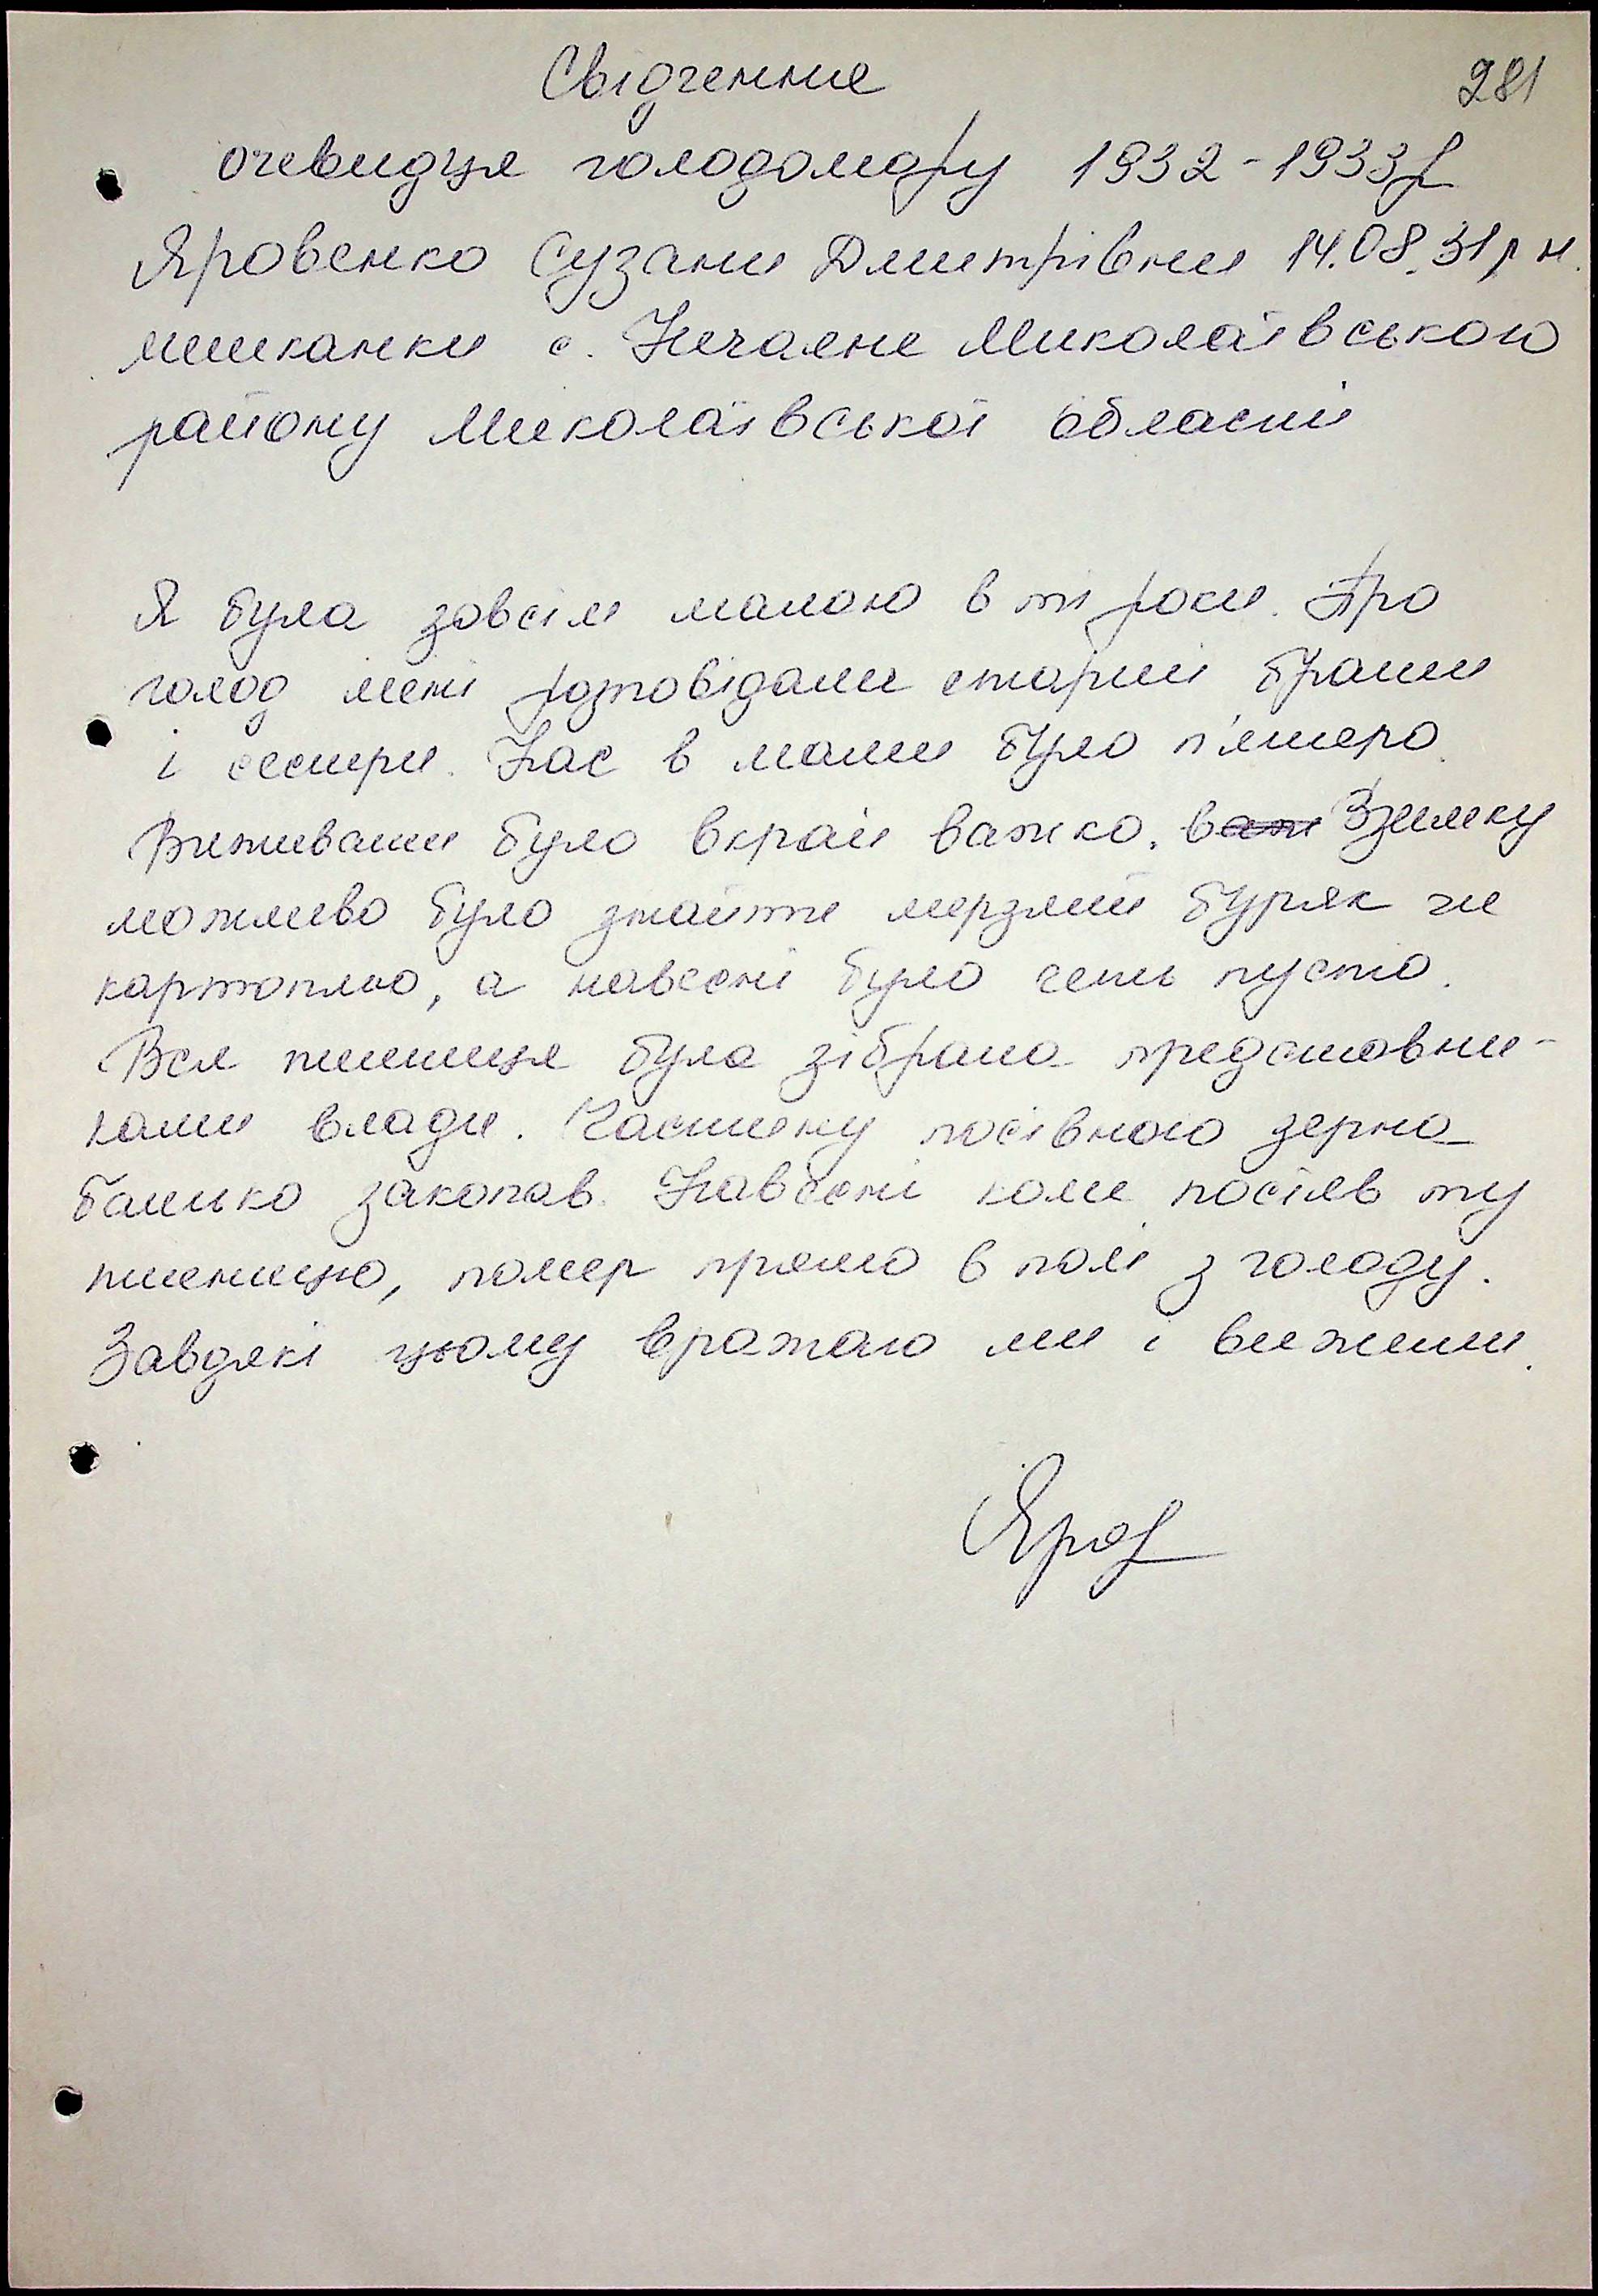 Свідчення
281
очевидця голодомору 1932-1933р
Яровенко Сузани Дмитрівни 14.08.31р н.
мешканки с. Нечаяне Миколаївського
району Миколаївської області
Я була зовсім малою в ті роки. Про
голод мені розповідали старші брати
і сестри. Нас в мами було п'ятеро.
Виживати було вкрай важко. важ Взимку
можливо було знайти мерзлий буряк чи
картоплю, а навесні було геть пусто.
Вся пшениця була зібрана представни-
ками влади. Частину посівного зерна
батько закопав. Навесні коли посіяв ту
пшеницю, помер прямо в полі з голоду.
Завдякі цьому врожаю ми і вижили.
Яров